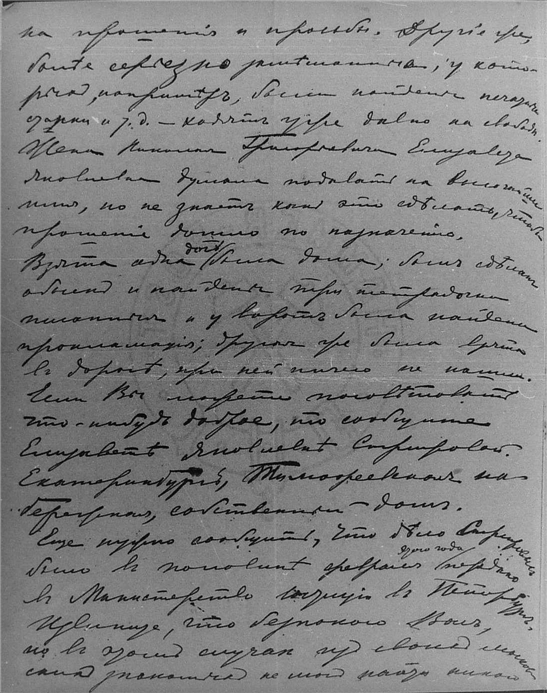 на прошенія и просьбы. Другіе же,
болѣе серіезно замѣшанные, у кото-
рыхъ, напримѣръ, были найдены
и т. д. – ходятъ уже давно на свободѣ.
Жена Николая Григорьевича Елизавета
Яковлевна думала подавать на Высочайшее
имя, но не знаетъ какъ это сдѣлать, чтобы
прошеніе дошло по назначенію.
Взята одна дочь была дома; былъ сдѣланъ
обыскъ и найдены три тетрадочки
писанныя и у воротъ была найдена
прокламація; другая же была взята
въ дорогѣ, при ней ничего не нашли.
Если Вы можете посовѣтовать
что-нибудь доброе, то сообщите
Елизаветѣ Яковлевнѣ
Екатеринбургъ, Тимофеевская на-
бережная, собственный – домъ.
Еще нужно сообщить, что дѣло
было въ половинѣ февраля этого года передано
въ Министерство юстиціи въ Петербургъ.
Извините, что безпокою Васъ,
но въ этомъ случаѣ изъ своихъ
знакомыхъ не могъ найти никого